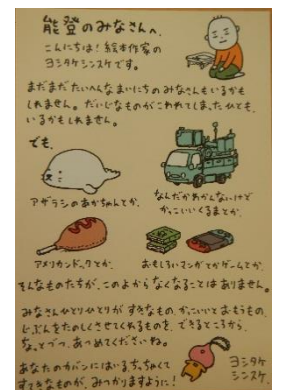 能登のみなさんへ。
こんにちは！絵本作家の
ヨシタケシンスケです。
まだまだたいへんなまいにちのみなさんもいるかも
しれません。だいじなものがこわれてしまったひとも、
いるかもしれません。
でも、
アザラシのあかちゃんとか、
なんだかわかんないけど
かっこいいくるまとか、
アメリカンドックとか、
おもしろいマンガとかゲームとか、
そんなものたちが、このよからなくなることはありません。
みなさんひとりひとりが、すきなもの、かっこいいとおもうもの、
じぶんをたのしくさせてくれるものを、できるところから、
ちょっとづつ、あつめてくださいね。
あなたのカバンにはいる、ちっちゃくて
すてきなものが、みつかりますように！
ヨシタケ
シンスケ.